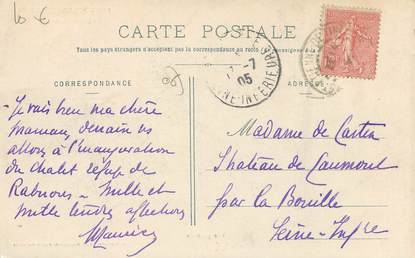 10 €
CARTE POSTALE
Tous les pays étrangers n'acceptent pas la correspondance au recto
CORRESPONDANCE
ADRESSE
-7
05
INFÉRIEURE
- Je vais bien ma chère
Maman, demain ns
allons à l'inauguration
du Chalet refuge de
Rabuons - Mille et
mille tendres affections
Maurice
Madame de Castex
Chateau de Caumont
par la Bouille
Seine-Infre